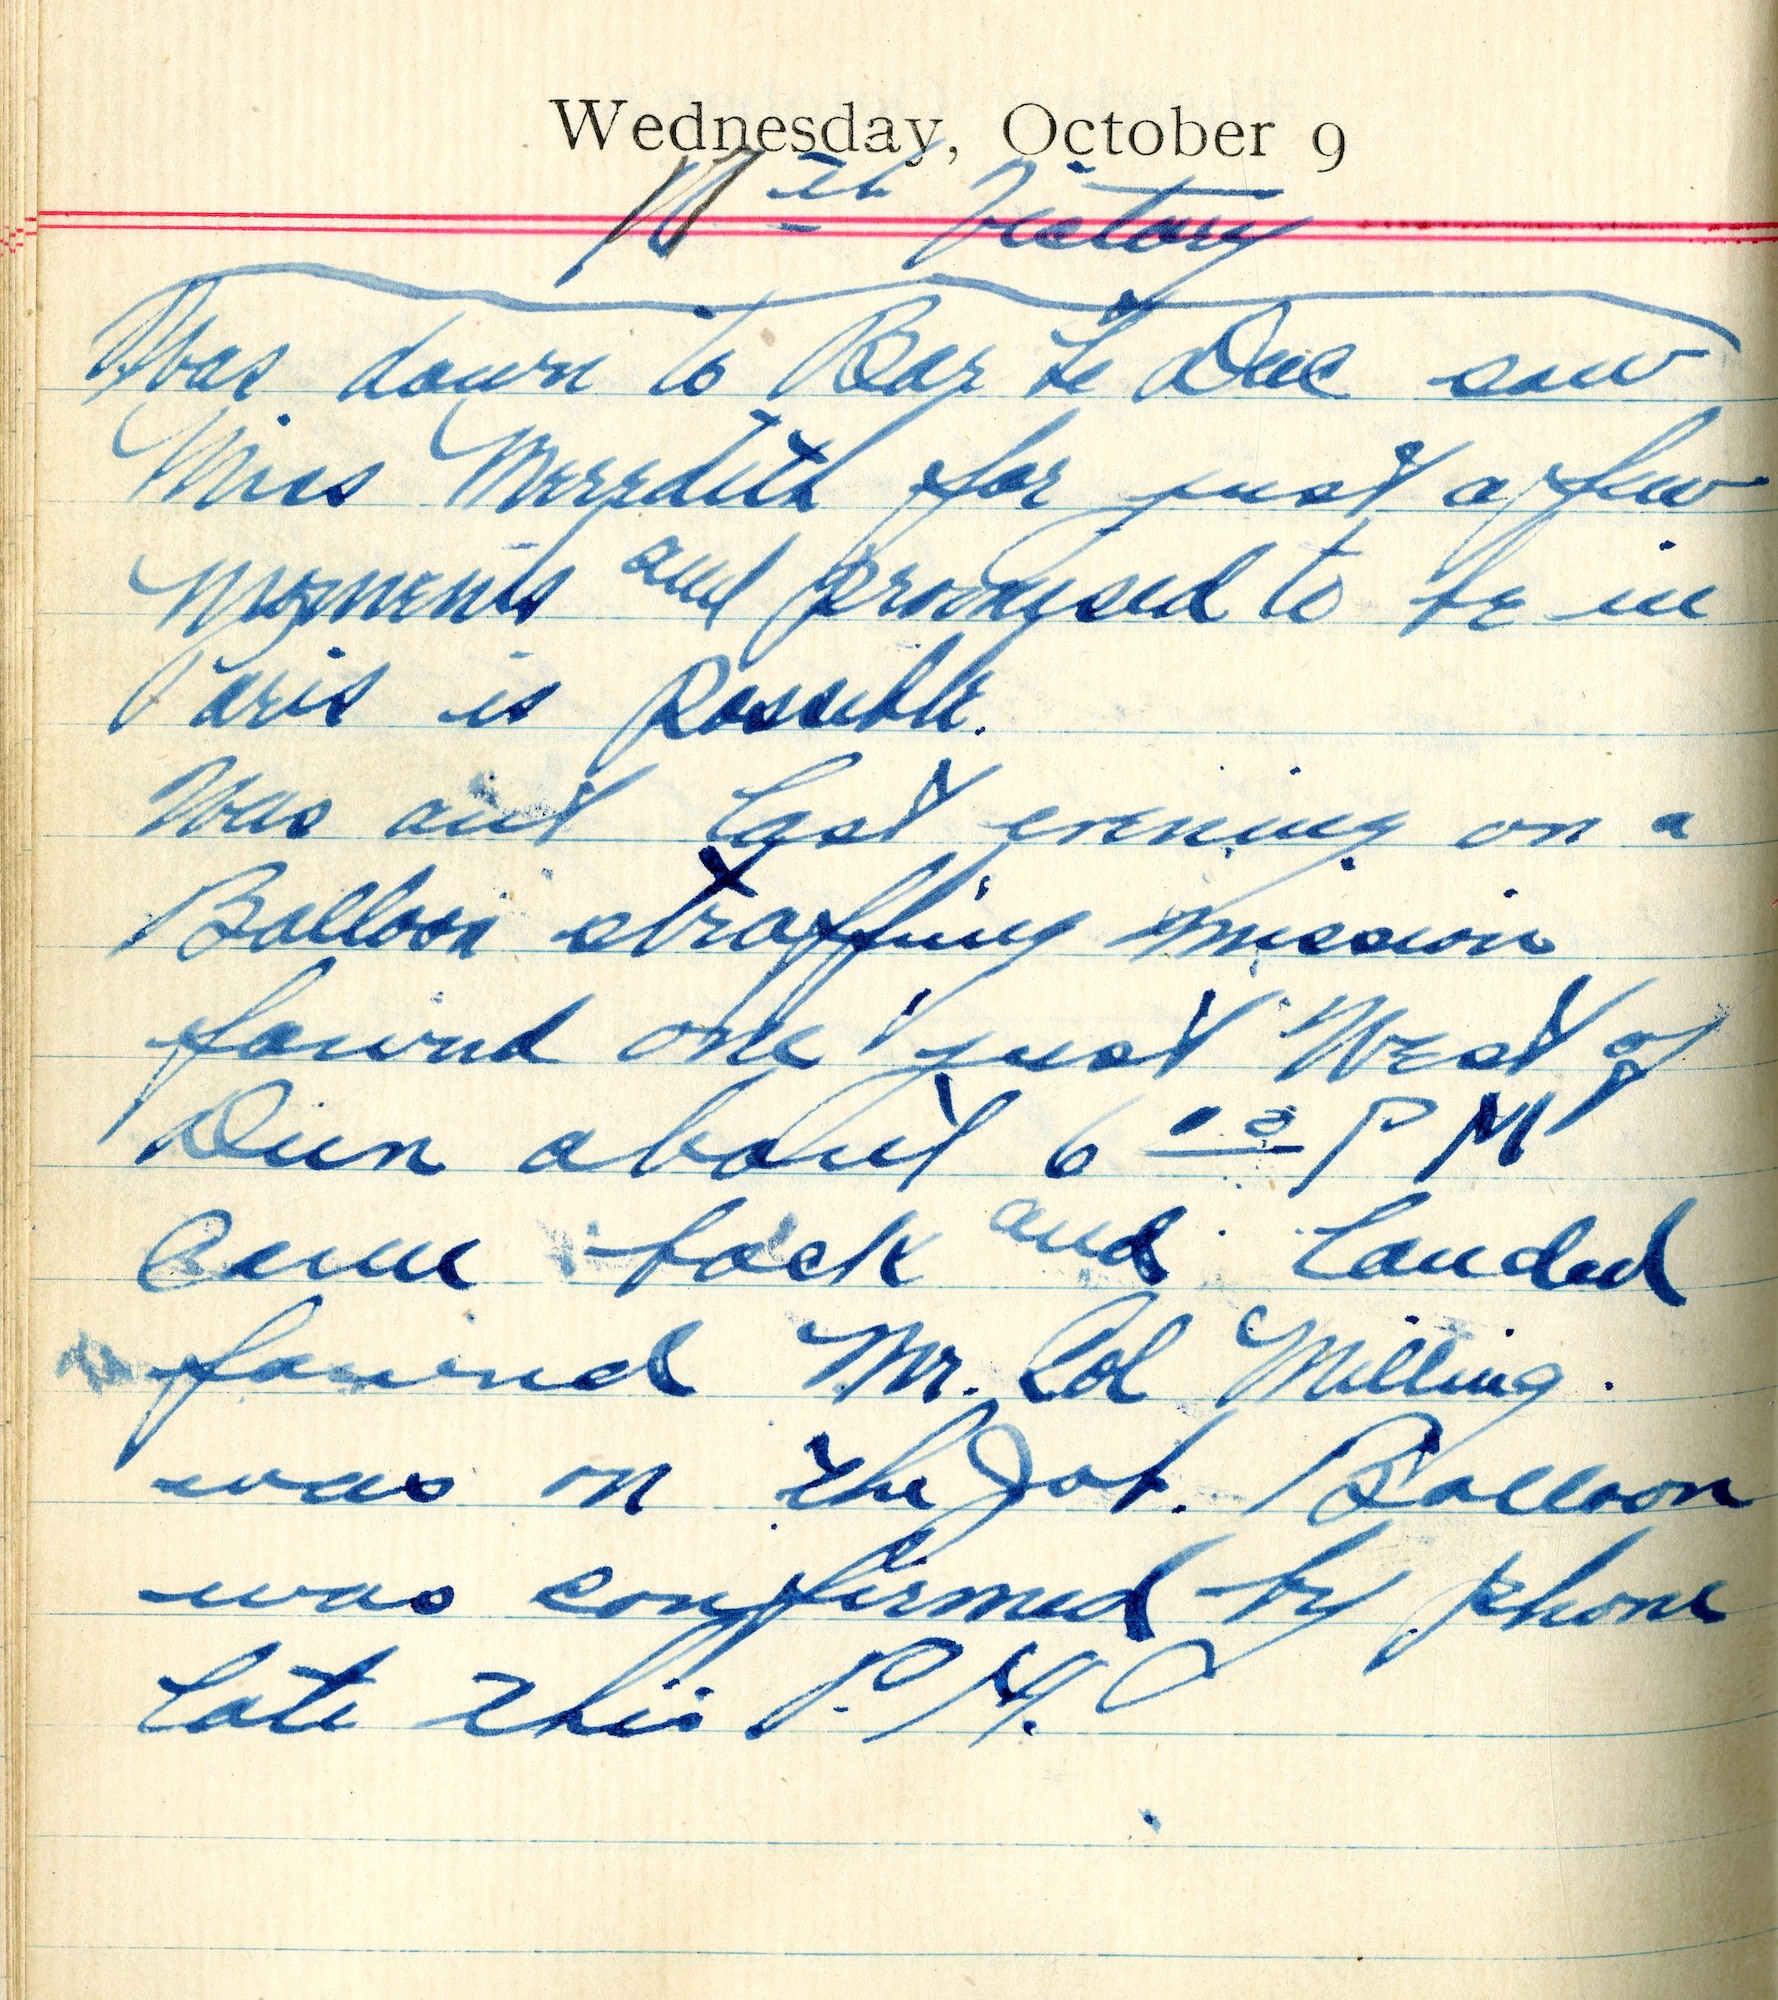 Wednesday, October 9
th Victory
Was down to Bar Le Duc saw
Miss Meredith for just a few
moments and promised to be in
Paris is Possible.
Was out last evening on a
Balloon straffing mission
found one just West of
Dun about 6 03 P M
Came back and landed
found Mr. Col Milling.
was on the Job. Balloon
was confirmed by phone
late this P.M.